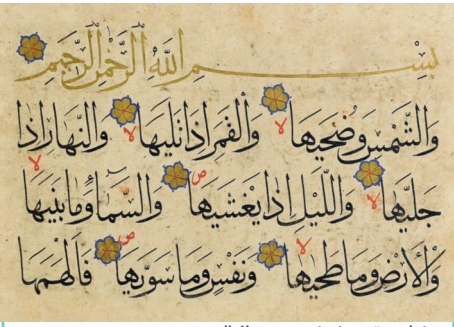 بِسْمِ اللَّهِ الرَّحْمَنِ الرَّحِيمِ
وَالشَّمْسِ وَضُحَيهَا لا وَالْقَمَرِ إِذَا تَلَيهَا لا وَالنَّهَارِ إِذَا
جَلَّيهَا لا وَاللَّيْلِ إِذَا يَغْشَيهَا ص وَالسَّمَاءِ وَمَا بَنَيهَا لا
وَالْأَرْضِ وَمَا طَحَيهَا لا وَنَفْسٍ وَمَا سَوَّيهَا ص فَأَلْهَمَهَا